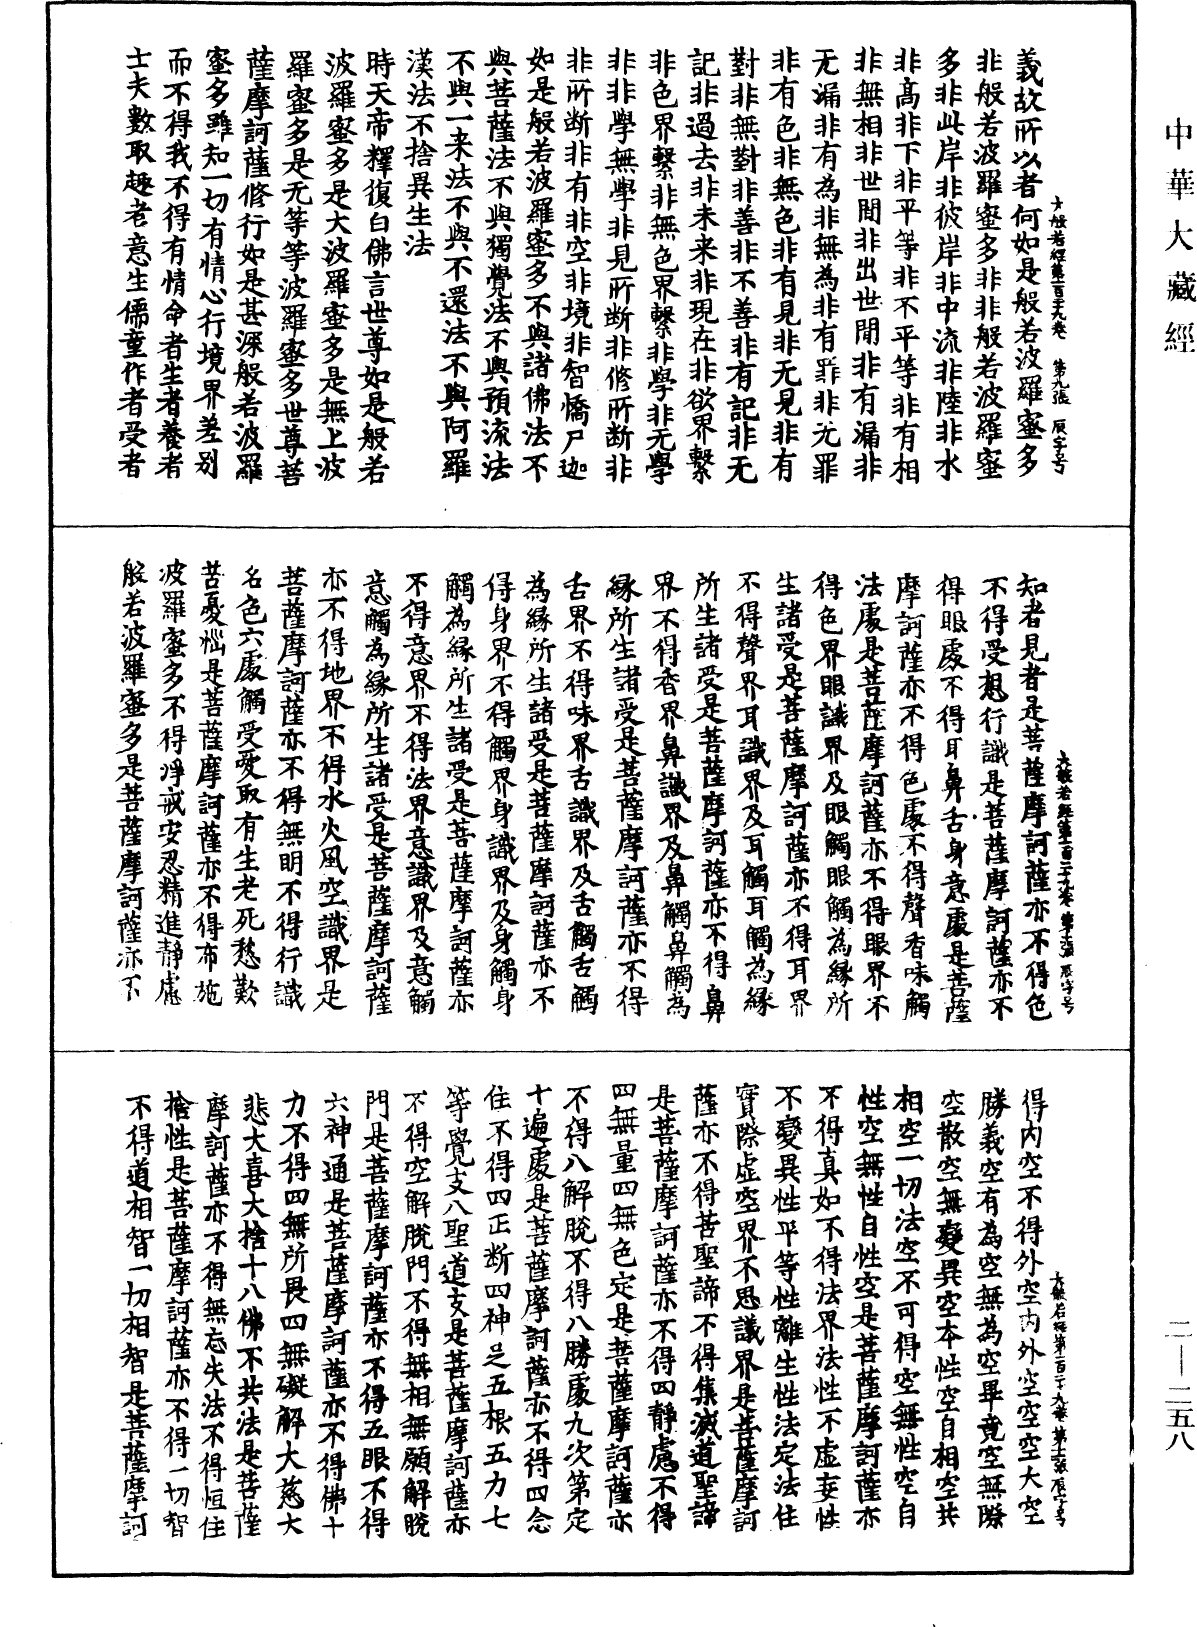 中華大藏經
大般若經第一百二十九卷　第九張　辰字号
義故所以者何如是般若波羅蜜多
非般若波羅蜜多非非般若波羅蜜
多非此岸非彼岸非中流非陸非水
非高非下非平等非不平等非有相
非無相非世間非出世間非有漏非
无漏非有為非無為非有罪非无罪
非有色非無色非有見非无見非有
對非無對非善非不善非有記非无
記非過去非未来非現在非欲界繫
非色界繫非無色界繫非學非无學
非非學無學非見所断非修所断非
非所断非有非空非境非智憍尸迦
如是般若波羅蜜多不與諸佛法不
與菩薩法不與獨覺法不與預流法
不與一来法不與不還法不與阿羅
漢法不捨異生法
時天帝釋復白佛言世尊如是般若
波羅蜜多是大波羅蜜多是無上波
羅蜜多是无等等波羅蜜多世尊菩
薩摩訶薩修行如是甚深般若波羅
蜜多雖知一切有情心行境界差别
而不得我不得有情命者生者養者
士夫數取趣者意生儒童作者受者
大般若經第一百二十九卷　第十張　辰字号
知者見者是菩薩摩訶薩亦不得色
不得受想行識是菩薩摩訶薩亦不
得眼處不得耳鼻舌身意處是菩薩
摩訶薩亦不得色處不得聲香味觸
法處是菩薩摩訶薩亦不得眼界不
得色界眼識界及眼觸眼觸為縁所
生諸受是菩薩摩訶薩亦不得耳界
不得聲界耳識界及耳觸耳觸為縁
所生諸受是菩薩摩訶薩亦不得鼻
界不得香界鼻識界及鼻觸鼻觸為
縁所生諸受是菩薩摩訶薩亦不得
舌界不得味界舌識界及舌觸舌觸
為縁所生諸受是菩薩摩訶薩亦不
得身界不得觸界身識界及身觸身
觸為縁所生諸受是菩薩摩訶薩亦
不得意界不得法界意識界及意觸
意觸為縁所生諸受是菩薩摩訶薩
亦不得地界不得水火風空識界是
菩薩摩訶薩亦不得無明不得行識
名色六處觸受愛取有生老死愁歎
苦憂惱是菩薩摩訶薩亦不得布施
波羅蜜多不得淨戒安忍精進靜慮
般若波羅蜜多是菩薩摩訶薩亦不
大般若經第一百二十九卷　第十一張　辰字号
得内空不得外空内外空空空大空
勝義空有為空無為空畢竟空無際
空散空無變異空本性空自相空共
相空一切法空不可得空無性空自
性空無性自性空是菩薩摩訶薩亦
不得真如不得法界法性不虚妄性
不變異性平等性離生性法定法住
實際虚空界不思議界是菩薩摩訶
薩亦不得苦聖諦不得集滅道聖諦
是菩薩摩訶薩亦不得四靜慮不得
四無量四無色定是菩薩摩訶薩亦
不得八解脱不得八勝處九次第定
十遍處是菩薩摩訶薩亦不得四念
住不得四正断四神足五根五力七
等覺支八聖道支是菩薩摩訶薩亦
不得空解脱門不得無相無願解脱
門是菩薩摩訶薩亦不得五眼不得
六神通是菩薩摩訶薩亦不得佛十
力不得四無所畏四無礙解大慈大
悲大喜大捨十八佛不共法是菩薩
摩訶薩亦不得無忘失法不得恒住
捨性是菩薩摩訶薩亦不得一切智
不得道相智一切相智是菩薩摩訶
二—二五八